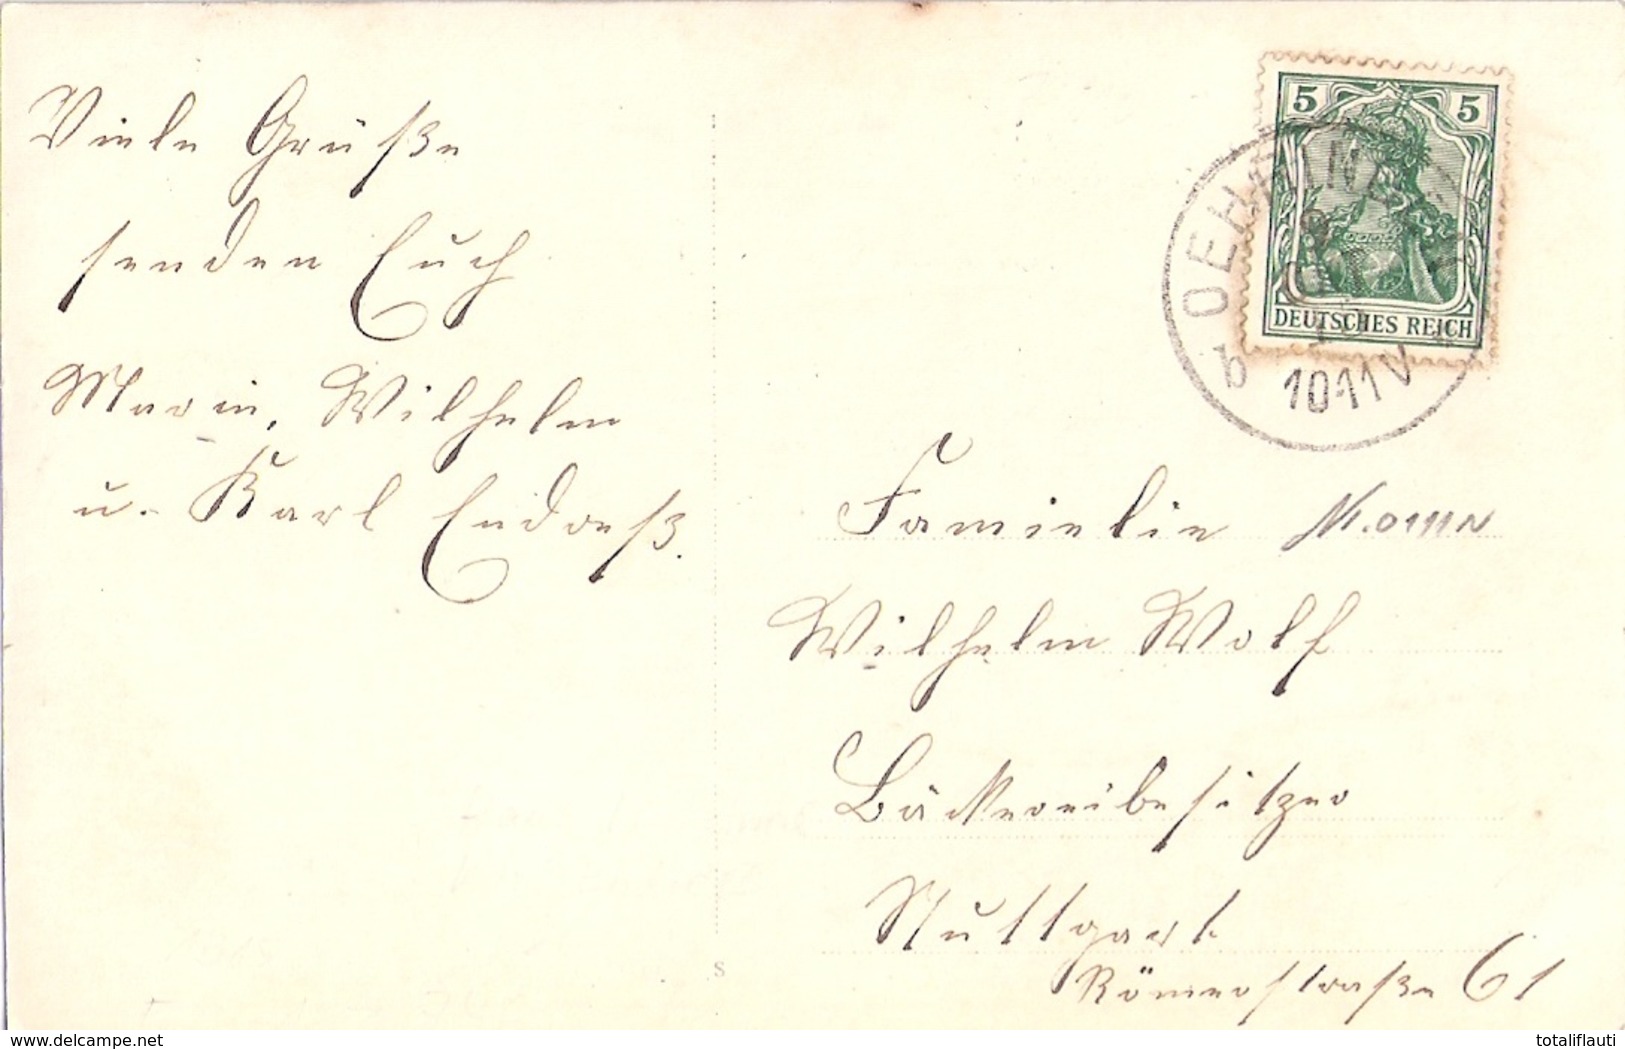 Viele Grüße
senden Euch
Marie, Wilhelm
u. Karl Endreß.
5 5
DEUTSCHES REICH
OEHRINGEN
b 10-11V
Familie
Wilhelm Wolf
Bäckereibesitzer
Stuttgart
Römerstraße 61
S
www.delcampe.net
totaliflauti